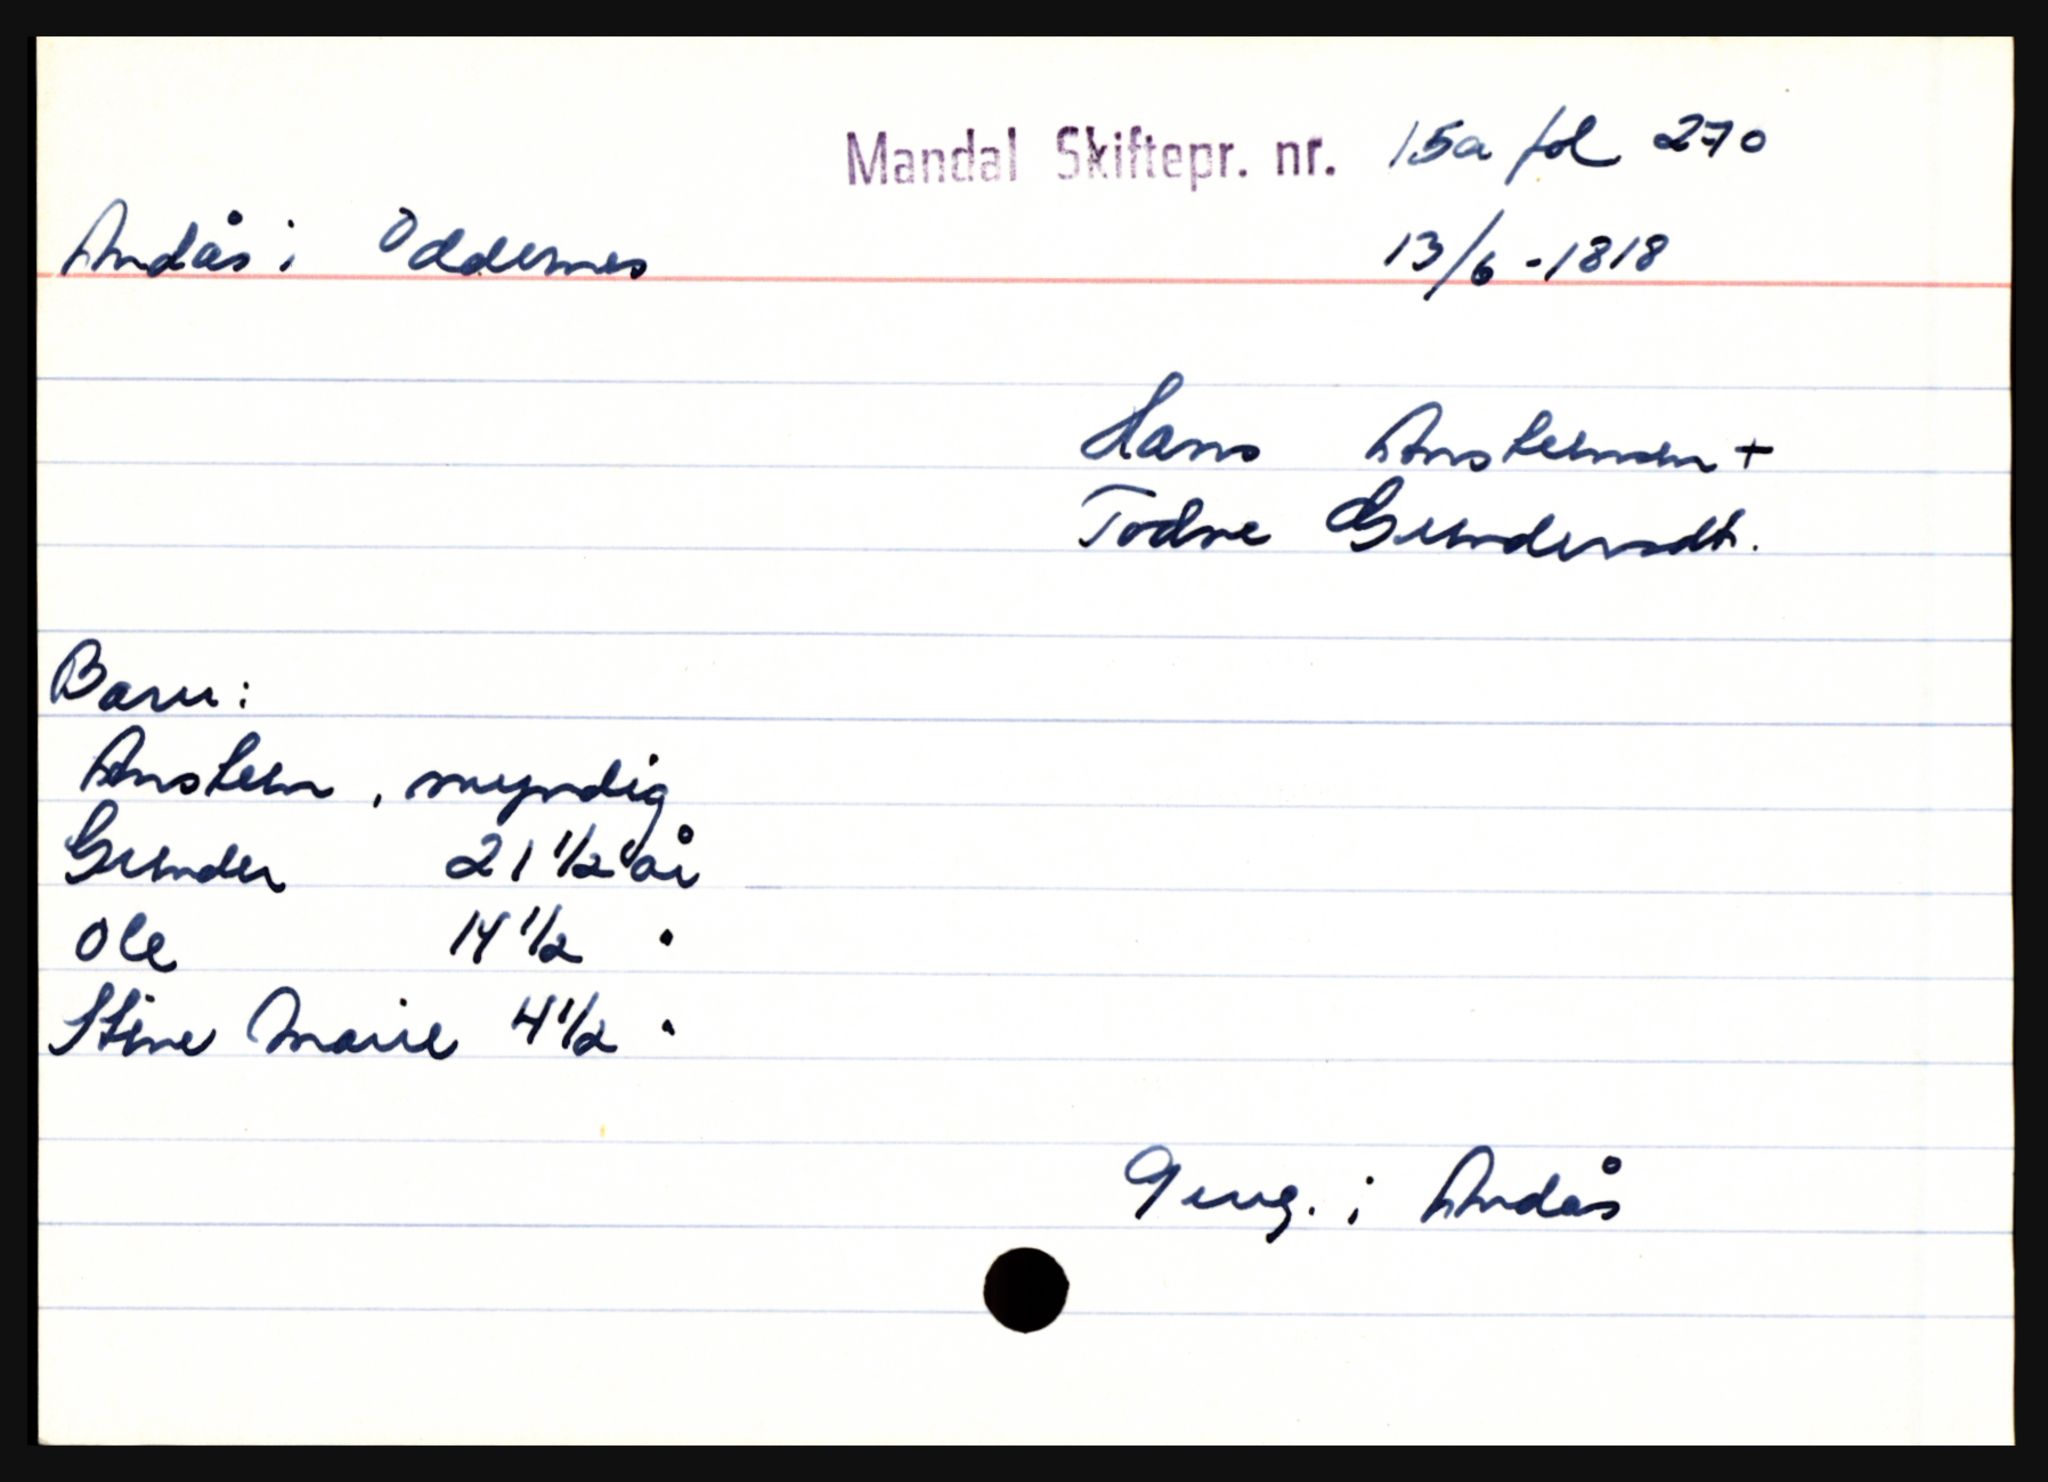 Mandal Skiftepr. nr. 15a fol 270
Andås i Oddernes 13/6 - 1818
Hans Ansteinsen +
Todne Gundersdt.
Barn:
Anstein, myndig
Gunder 21 1/2 år
Ole 14 1/2 "
Stine Marie 4 1/2 "
i Andås